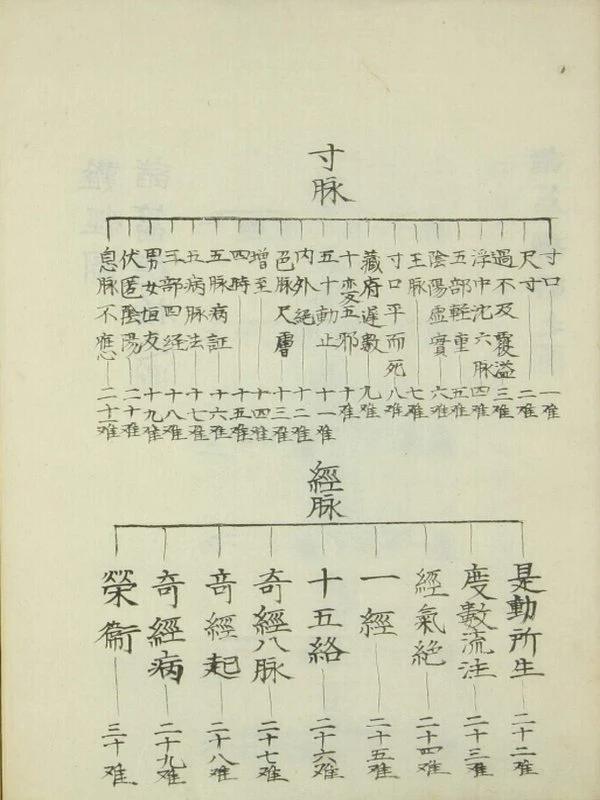 寸脉
寸口 一难
尺寸 二难
過不及覆溢 三难
浮中沈六脉 四难
五部軽重 五难
陰陽虚實 六难
王脉 七难
寸口平而死 八难
藏府遅數 九难
十変五邪 十难
五十動止 十一难
内外絕 十二难
色脉尺膚 十三难
增至 十四难
四時 十五难
五脉病証 十六难
五病脉法 十七难
三部四经 十八难
男女恒反 十九难
伏匿陰陽 二十难
息脉不應 二十一难
經脉
是動所生 二十二难
度數流注 二十三难
經氣絶 二十四难
一經 二十五难
十五絡 二十六难
奇經八脉 二十七难
奇經起 二十八难
奇經病 二十九难
榮衞 三十难